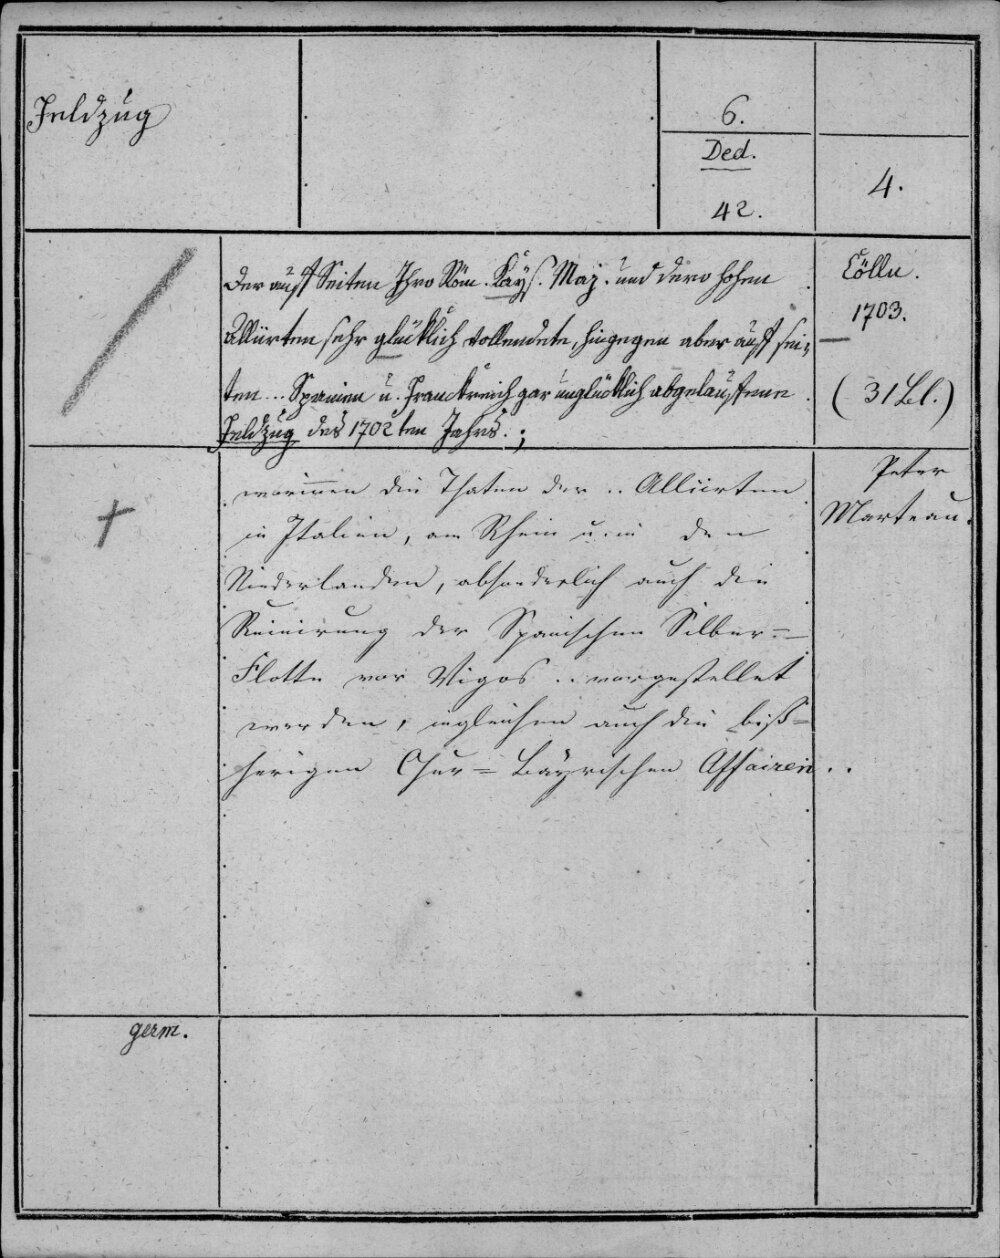 Feldzug
6.
Ded.
42.
4.
Der auff Seiten Ihro Röm. Kays. Maj. und dero hohen
Alliirten sehr glücklich vollendete, hingegen aber auff sei-
ten... Spanien u. Franckreich gar unglücklich abgelauffene
Feldzug des 1702ten Jahrs.;
Cölln.
1703.
(31 Bl.)
worinnen die Thaten der .. Alliirten
in Italien, am Rhein u. in den
Niederlanden, absonderlich auch die
Ruinirung der Spanischen Silber=
Flotte vor Vigos .. vorgestellet
werden, ingleichen auch die biß=
herigen Chur=Bayrischen Affairen..
Peter
Marteau.
germ.